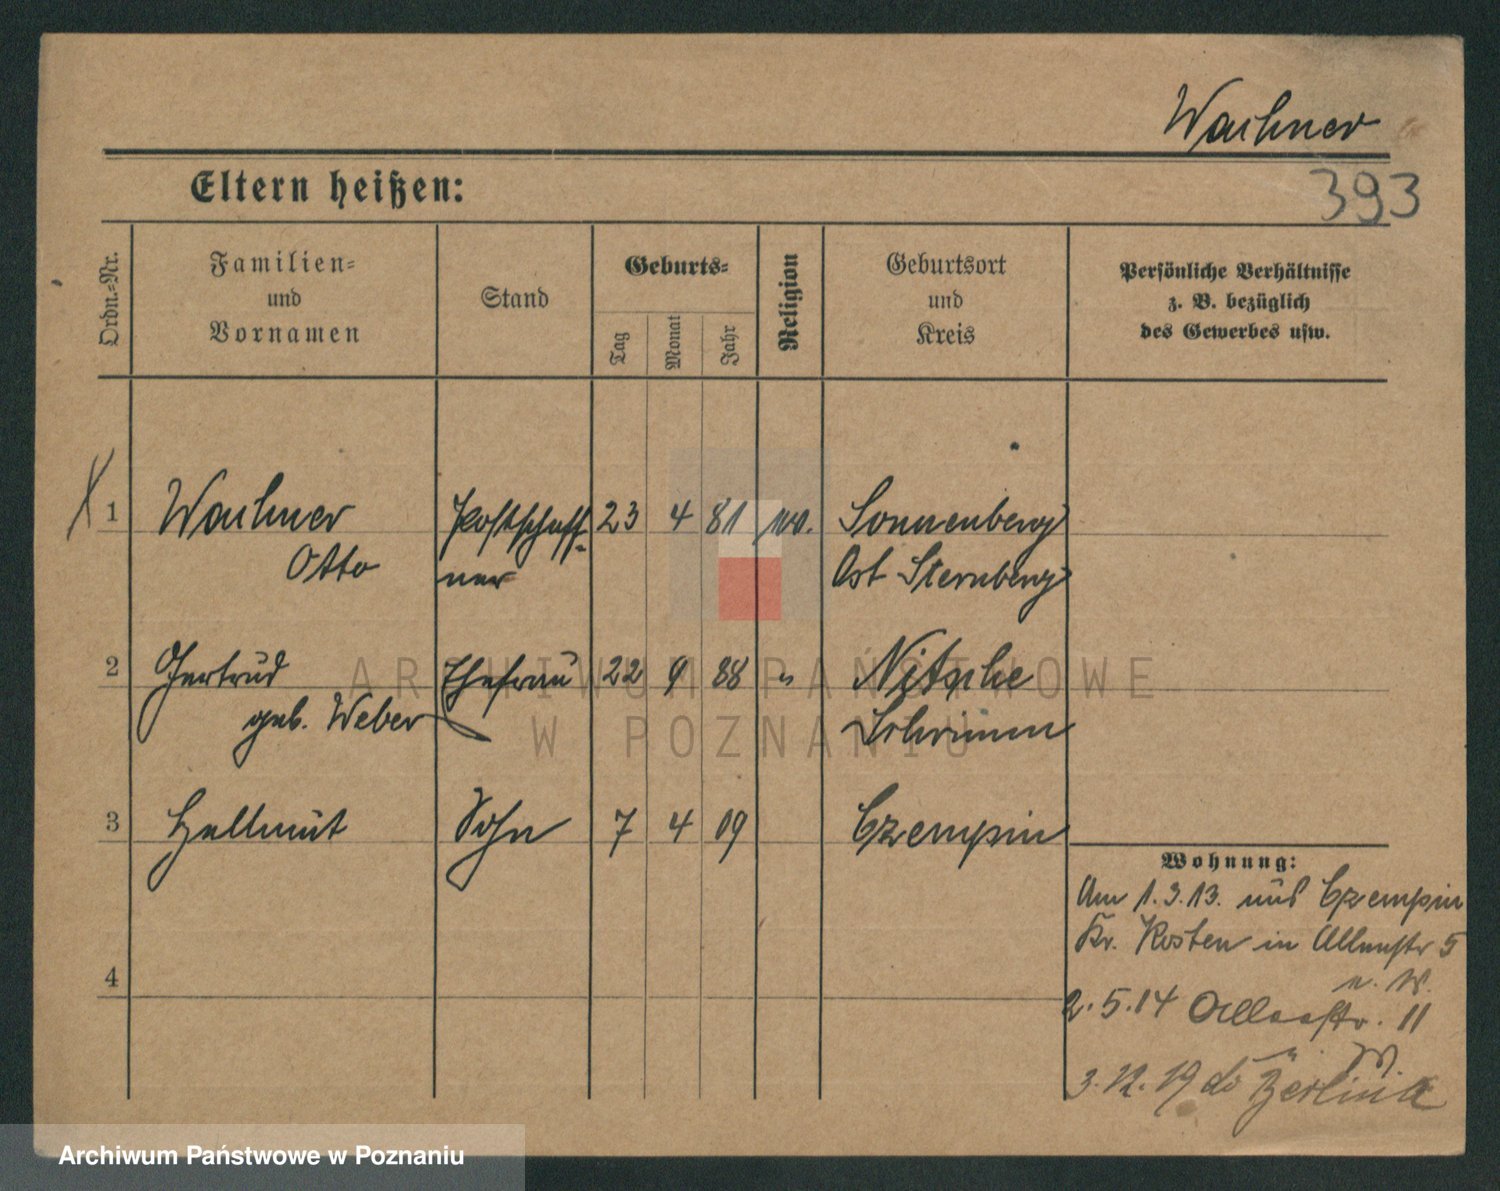 Wachner
393
Eltern heißen:
Ordn.-Nr.
Familien-
und
Vornamen
Stand
Geburts-
Tag
Monat
Jahr
Religion
Geburtsort
und
Kreis
Persönliche Verhältnisse
z. B. bezüglich
des Gewerbes usw.
1 Wachner Postschaff- 23 4 81 Sonnenberg
Otto ner Ost Sternberg
2 Gertrud Ehefrau 22 9 88 " Nitsche
geb. Weber Schrimm
3 Hellmut Sohn 7 4 09 Czempin
Wohnung:
Am 1.3.13. aus Czempin
Kr. Kosten in Alleestr 5
n. W.
4
2.5.14 Alleestr. 11
W.
3.12.19 do Berlin
ARCHIWUM PAŃSTWOWE
W POZNANIU
Archiwum Państwowe w Poznaniu